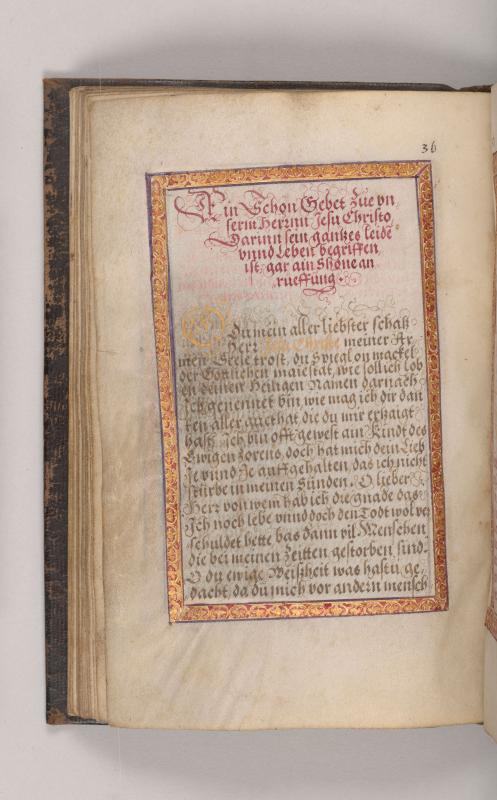 36
Ain Schon Gebet zue vn
serm herrnn Jesu Christo,
Darinn sein gantzes leidē
vnnd Leben begriffen,
ist, gar ain Shöne an
rueffung.
O Du mein aller liebster schatz
Herr Jesu Christe meiner Ar
men Seele trost, du Spiegl on mackel
der Göttlichen maiestat, wie soll ich lob
en deinen Heiligen Namen darnach
Ich genennet bin, wie mag ich dir dan
ken aller guethat die du mir erzaigt
hast, Ich bin offt gewest ain Kindt des
Ewigen zorens, doch hat mich dein Lieb
Je vnnd Je auffgehalten, das ich nicht
sturbe in meinen Sünden. O lieber
Herr von wem hab ich die gnade das
Ich noch lebe vnnd doch den Todt wol ver
schuldet hette bas dann vil Menschen
die bei meinen Zeitten gestorben sind.
O du ewige Weißheit was hastu ge
dacht, da du mich vor andern mensch